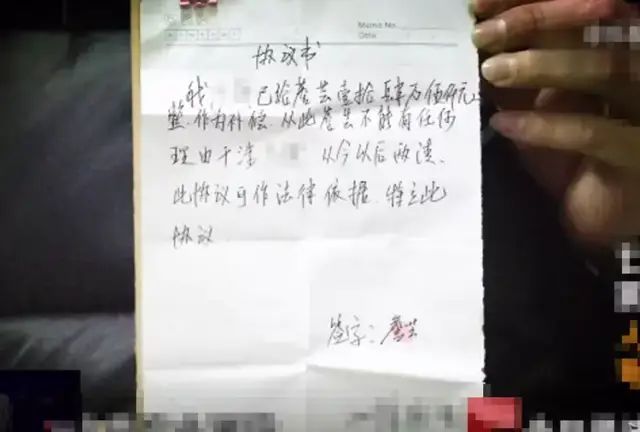 Memo No.
Date
协议书
我 已给詹芸壹拾肆万伍仟元
整.作为补偿.从此詹芸不能有任何
理由干涉 从今以后两清.
此协议可作法律依据.特立此
协议
签字:詹芸